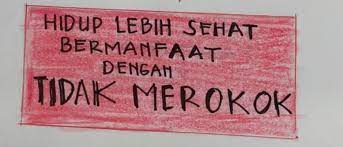 HIDUP LEBIH SEHAT
BERMANFAAT
DENGAN
TIDAK MEROKOK